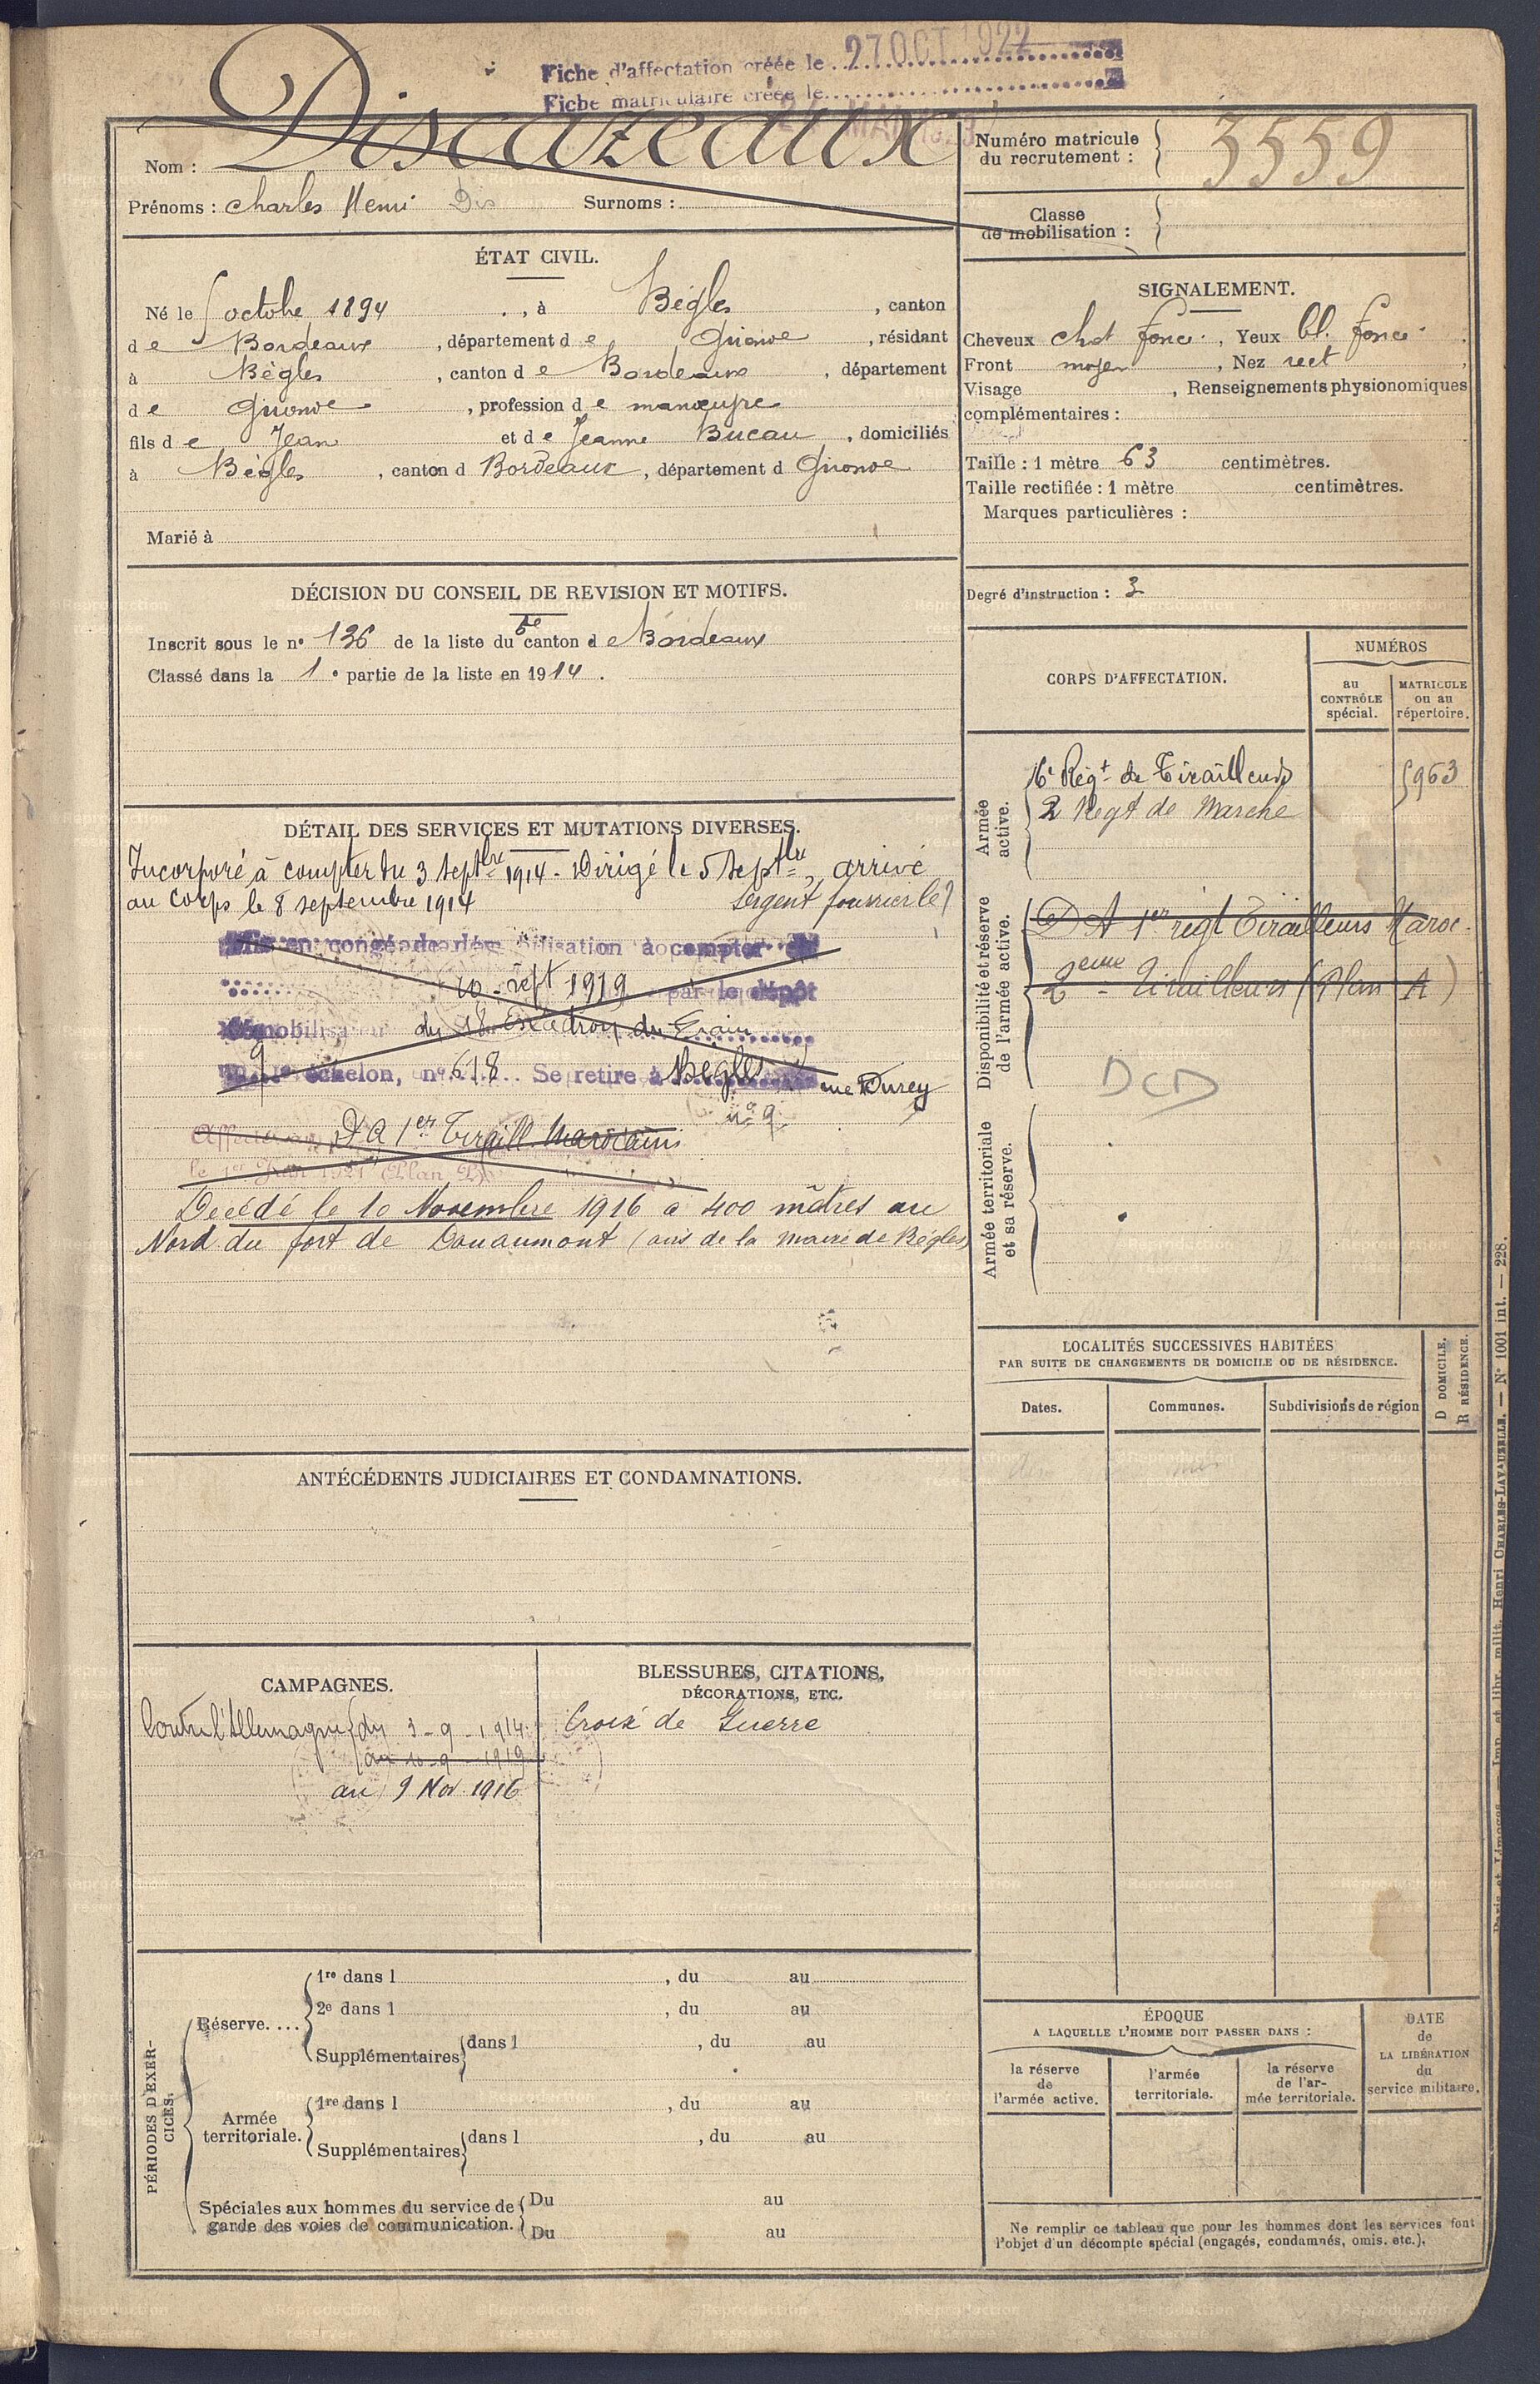 Fiche d'affectation créée le 27 OCT 1922
Fiche matriculaire créée le
Nom : Discazeaux
Prénoms : Charles Henri Dis Surnoms :
Numéro matricule
du recrutement : 3559
Classe
de mobilisation :
ÉTAT CIVIL.
Né le 5 octobre 1894, à Bègles, canton
de Bordeaux, département de Gironde, résidant
à Bègles, canton de Bordeaux, département
de Gironde, profession de manœuvre
fils de Jean et de Jeanne Bucau, domiciliés
à Bègles, canton d Bordeaux, département d Gironde
Marié à
SIGNALEMENT.
Cheveux chat foncé, Yeux bl. foncé
Front moyen, Nez rect
Visage , Renseignements physionomiques
complémentaires :
Taille : 1 mètre 63 centimètres.
Taille rectifiée : 1 mètre centimètres.
Marques particulières :
Degré d'instruction : 3
DÉCISION DU CONSEIL DE REVISION ET MOTIFS.
Inscrit sous le n° 136 de la liste du 6e canton de Bordeaux
Classé dans la 1e partie de la liste en 1914.
CORPS D'AFFECTATION.
NUMÉROS
au
CONTRÔLE
spécial.
MATRICULE
ou au
répertoire.
Armée
active.
6e Régt de Tirailleurs 5963
2 Régt de Marche
Disponibilité et réserve
de l'armée active.
D A 1er régt Tirailleurs Maroc.
2eme Tirailleurs (Plan A)
DCD
Armée territoriale
et sa réserve.
DÉTAIL DES SERVICES ET MUTATIONS DIVERSES.
Incorporé à compter du 3 septbre 1914 - Dirigé le 5 septbre, arrivé
au corps le 8 septembre 1914 Sergent fourrier le
Mis en congé de démobilisation à compter du
10 sept 1919 par le dépôt
démobilisateur du 18e Escadron du Train
9 échelon, n° 618 Se retire à Bègles rue Durey
n° 9
Affecté au D A 1er Tiraill. Marocains
le 1er Juin 1921 Plan
Décédé le 10 Novembre 1916 à 400 mètres au
Nord du fort de Douaumont (avis de la mairie de Bègles)
LOCALITÉS SUCCESSIVES HABITÉES
PAR SUITE DE CHANGEMENTS DE DOMICILE OU DE RÉSIDENCE.
Dates.
Communes.
Subdivisions de région
D DOMICILE.
R RÉSIDENCE.
ANTÉCÉDENTS JUDICIAIRES ET CONDAMNATIONS.
CAMPAGNES.
Contre l'Allemagne du 3-9-1914
au 10-9-1919
au 9 Nov 1916
BLESSURES, CITATIONS,
DÉCORATIONS, ETC.
Croix de Guerre
PÉRIODES D'EXER-
CICES.
Réserve....
1re dans l , du au
2e dans l , du au
Supplémentaires dans l , du au
Armée
territoriale.
1re dans l , du au
Supplémentaires dans l , du au
Spéciales aux hommes du service de
garde des voies de communication.
Du au
Du au
ÉPOQUE
A LAQUELLE L'HOMME DOIT PASSER DANS :
la réserve
de
l'armée active.
l'armée
territoriale.
la réserve
de l'ar-
mée territoriale.
DATE
de
LA LIBÉRATION
du
service militaire.
Ne remplir ce tableau que pour les hommes dont les services font
l'objet d'un décompte spécial (engagés, condamnés, omis, etc.).
Paris et Limoges. — Imp. et libr. milit. Henri CHARLES-LAVAUZELLE. — N° 1001 int. — 228.
©Reproduction
réservée